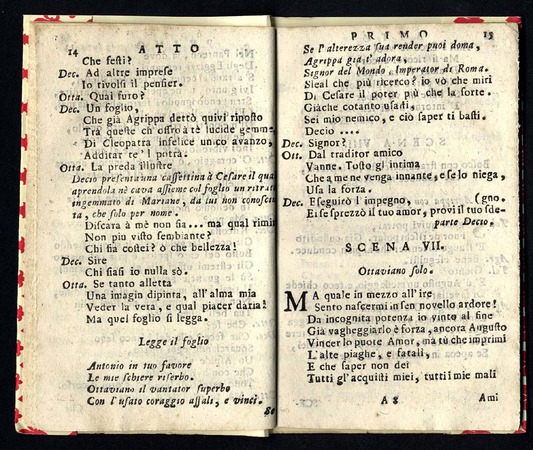 14 ATTO
Che festi?
Dec. Ad altre imprese
Io rivolsi il pensier.
Otta. Quai furo?
Dec. Un foglio,
Che già Agrippa dettò quivi riposto
Trà queste ch'offro à tè lucide gemme,
Di Cleopatra infelice unico avanzo,
Additar te'l potrà.
Otta. La preda illustre
Decio presenta una cassettina à Cesare il qual
aprendola nè cava assieme col foglio un ritrat
ingemmato di Mariane, da lui non conosciu
ta, che solo per nome.
Discara à mè non sia... ma qual rimir
Non più visto sembiante?
Chi fia costei? ò che bellezza!
Dec. Sire
Chi siasi io nulla sò.
Otta. Se tanto alletta
Una imagin dipinta, all'alma mia
Veder la vera, e qual piacer daria!
Ma quel foglio si legga.
Legge il foglio
Antonio in tuo favore
Le mie schiere riserbo.
Ottaviano il vantator superbo
Con l'usato coraggio assali, e vinci.
Se
PRIMO 15
Se l'alterezza sua render puoi doma,
Agrippa già t'adora,
Signor del Mondo, Imperator di Roma.
Sleal che più ricerco? io vò che miri
Di Cesare il poter più che la sorte.
Giàche cotanto usasti,
Sei mio nemico, e ciò saper ti basti.
Decio ....
Dec. Signor?
Ott. Dal traditor amico
Vanne. Tosto gl'intima
Che a me ne venga innante, e se lo niega,
Usa la forza.
Dec. Eseguirò l'impegno, (gno.
Ei se sprezzò il tuo amor, provi il tuo sde-
parte Decio.
SCENA VII.
Ottaviano solo.
MA quale in mezzo all'ire
Sento nascermi in sen novello ardore!
Da incognita potenza io vinto al fine
Già vagheggiarlo è forza, ancora Augusto
Vincer lo puote Amor, mà tù che imprimi
L'alte piaghe, e fatali,
E che saper non dei
Tutti gl'acquisti miei, tutti i mie mali
A 8 Ami